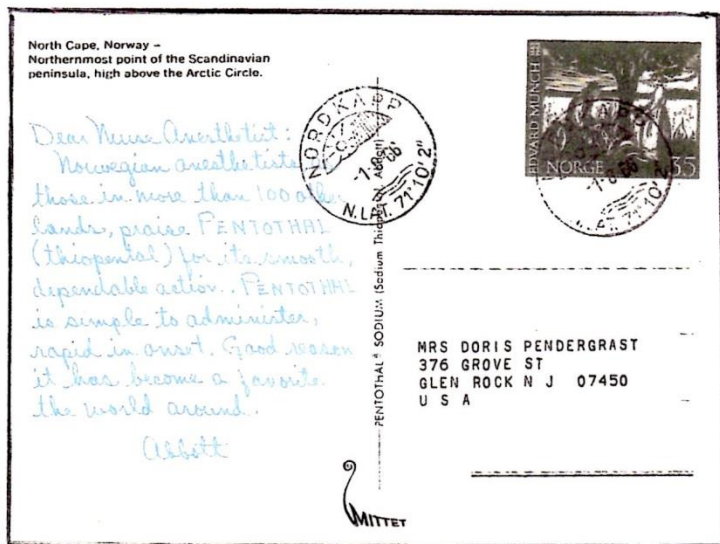 North Cape, Norway –
Northernmost point of the Scandinavian
peninsula, high above the Arctic Circle.
Dear Nurse Anesthetist:
Norwegian anesthetists,
those in more than 100 other
lands, praise PENTOTHAL
(thiopental) for its smooth,
dependable action. PENTOTHAL
is simple to administer,
rapid in onset. Good reason
it has become a favorite
the world around.
Abbott
PENTOTHAL® SODIUM (Sodium Abbott)
NORDKAPP
-1.8.66
N.LAT. 71°10'2"
EDVARD MUNCH
NORGE 35
-1.8.66
71°10'2"
MRS DORIS PENDERGRAST
376 GROVE ST
GLEN ROCK N J 07450
U S A
MITTET